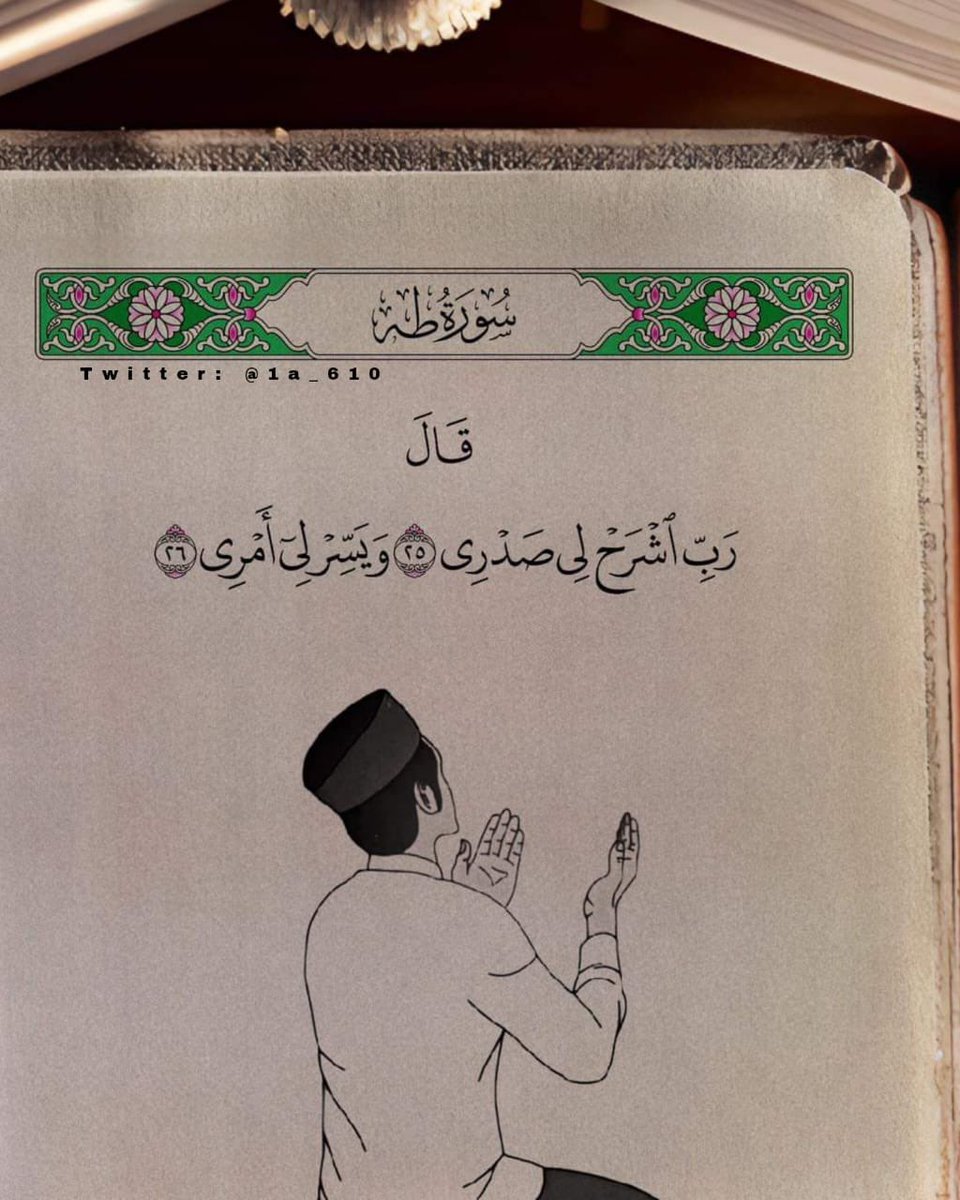 سُورَةُ طه
Twitter: @1a_610
قَالَ
رَبِّ ٱشۡرَحۡ لِی صَدۡرِی ٢٥ وَیَسِّرۡ لِیۤ أَمۡرِی ٢٦